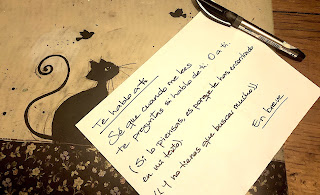 Te hablo a ti
Sé que cuando me lees
te preguntas si hablo de ti. O a ti.
(Si lo piensas, es porque te has encontrado
en mi texto)
(Y no tienes que buscar mucho)
En breve